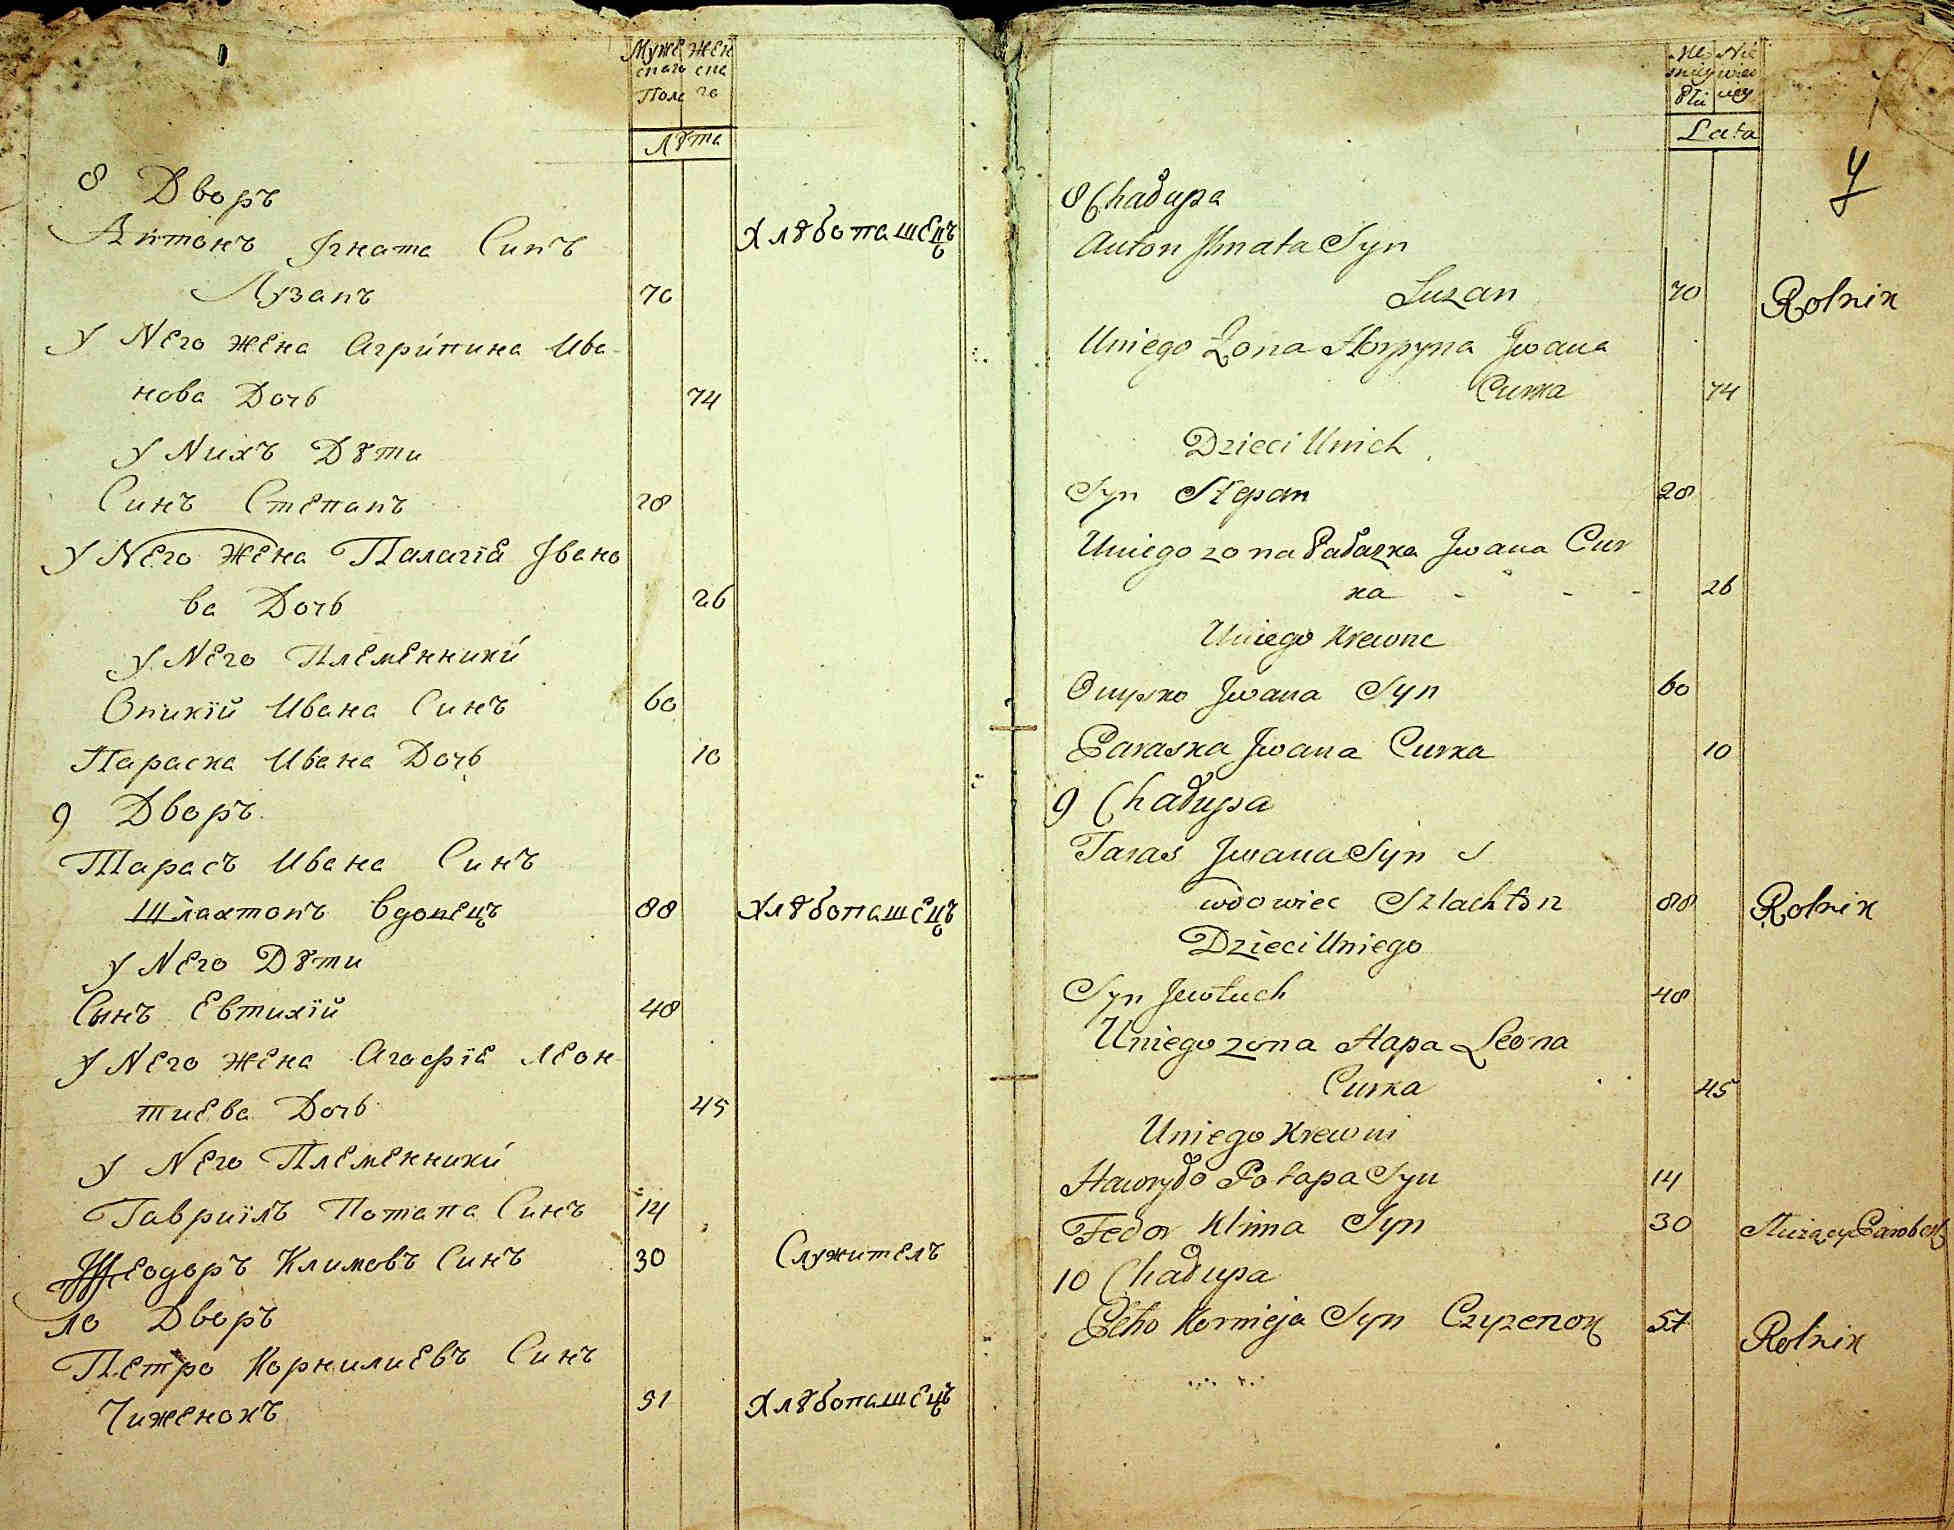 Муже жен
скаго ска
Пола го
Лѣта
8 Дворъ
Антонъ Ігната Синъ
Хлѣбопашецъ
Лузанъ 70
у Него жена Агрипина Ива-
нова Дочь 74
у Нихъ Дѣти
Синъ Степанъ 28
у Него жена Палагіа Івано
ва Дочь 26
у Него Племенники
Оникій Ивана Синъ 60
Параска Ивана Дочь 10
9 Дворъ
Тарасъ Ивана Синъ
Шлахтонъ вдовецъ 88 Хлѣбопашецъ
у Него Дѣти
Сынъ Евтихій 48
у Него жена Агафіа Леон
тиева Дочь 45
у Него Племенники
Гавриілъ Потапа Синъ 14
Феодоръ Климовъ Синъ 30 Служителъ
10 Дворъ
Петро Корнилиевъ Синъ
Чиженокъ 51 Хлѣбопашецъ
Lata
4
8 Chałupa
Anton Jhnata Syn
Luzan 70 Rolnik
Uniego Żona Horpyna Jwana
Curka 74
Dzieci Unich
Syn Stepan 28
Uniego zona Pałazka Jwana Cur
ka - - - 26
Uniego Krewne
Onysko Jwana Syn 60
Paraska Jwana Curka 10
9 Chałupa
Taras Jwana Syn
wdowiec Szlachton 88 Rolnik
Dzieci Uniego
Syn Jewtuch 48
Uniego zona Hapa Leona
Curka 45
Uniego Krewni
Hawryło Potapa Syn 14
Fedor Klima Syn 30 Służący Parobek
10 Chałupa
Petro Kornieja Syn Czyzenok 57 Rolnik